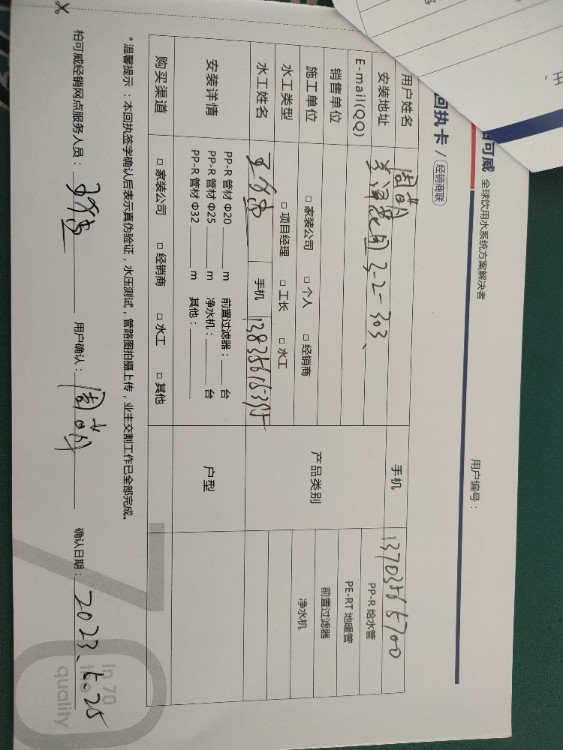 可威 全球饮用水系统方案解决者
回执卡 / 经销商联
用户编号：
用户姓名 手机 13703565700
安装地址 3-2-303、
E-mail(QQ)
销售单位
施工单位 □ 家装公司 □ 个人 □ 经销商
产品类别 PP-R 给水管
PE-RT 地暖管
前置过滤器
净水机
水工类型 □ 项目经理 □ 工长 □ 水工
水工姓名 手机
安装详情 PP-R 管材 Φ20 m 前置过滤器： 台
PP-R 管材 Φ25 m 净水机： 台
PP-R 管材 Φ32 m 其他：
户型
购买渠道 □ 家装公司 □ 经销商 □ 水工 □ 其他
*温馨提示：：本回执签字确认后表示真伪验证，水压测试，管路图拍摄上传，业主交割工作已全部完成。
柏可威经销网点服务人员： 用户确认： 确认日期： 2023.5.25
In 70
the
quality